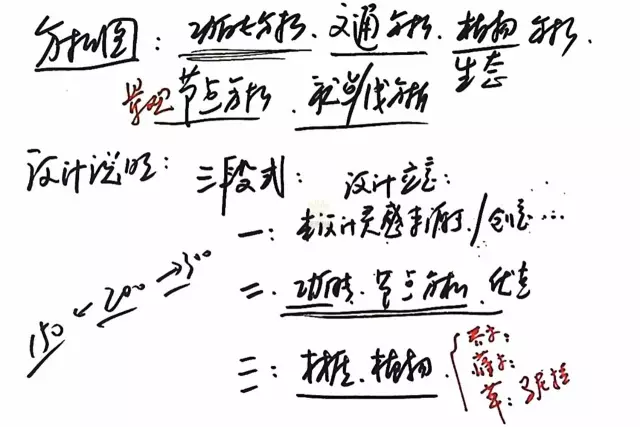 分析图：功能分析、交通分析、植物分析、
生态
景观节点分析、视线分析
设计说明：三段式：设计立意：
一：本设计灵感来源于/创意…
150 ← 200 → 300
二、功能、节点分析、优点
三：材质、植物
乔木：
灌木：
草：马尼拉